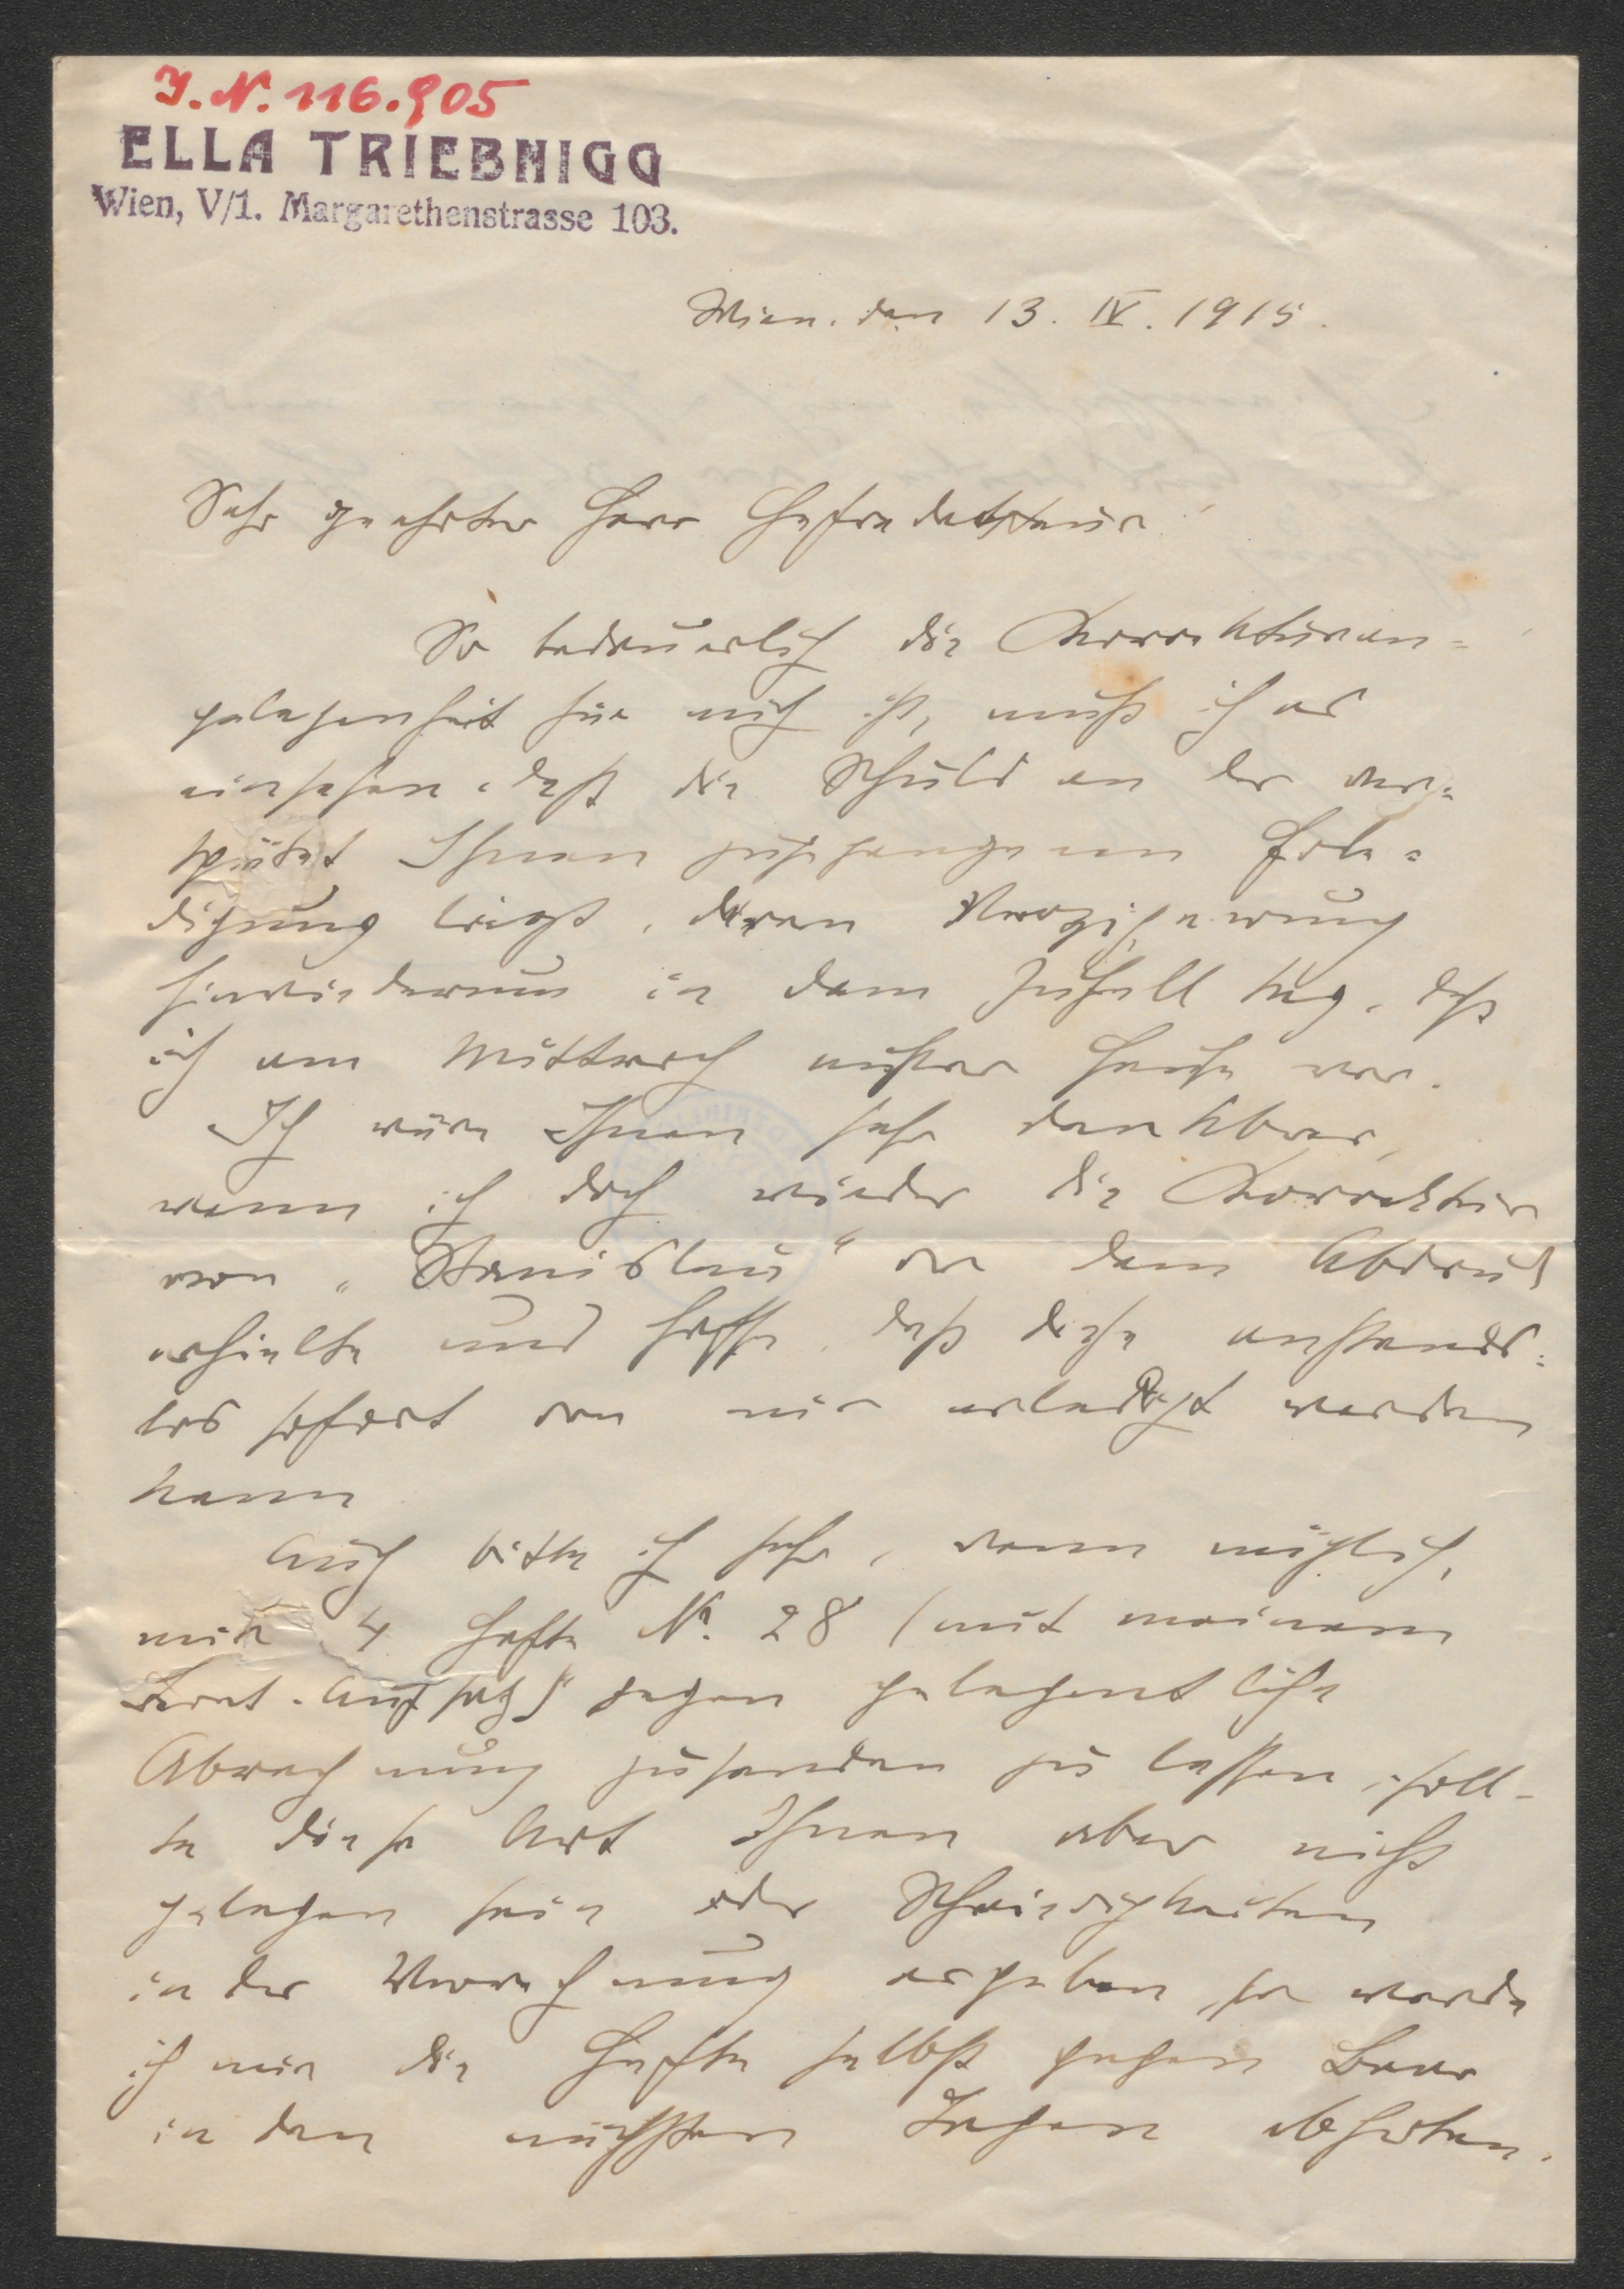 I.N. 116.905
ELLA TRIEBNIGG
Wien, V/1. Margarethenstrasse 103.
Wien, den 13. IV. 1915.
Sehr geehrter Herr Chefredakteur!
So bedauerlich die Korrekturan=
gelegenheit für mich ist, muß ich es
einsehen, daß die Schuld an der ver=
spätet Ihnen zugegangenen Erle=
digung liegt, deren Verzögerung
hinwiederum in dem Zufall lag, daß
ich am Mittwoch außer Hause war.
Ich wäre Ihnen sehr dankbar,
wenn ich doch wieder die Korrektur
von „Stanislau“ vor dem Abdruck
erhielte und hoffe, daß diese anstands=
los sofort von mir erledigt werden
kann
Auch bitte ich sehr, wenn möglich,
mir 4 Hefte No. 28 (mit meinem
Aufsatz) gegen gelegentliche
Abrechnung zusenden zu lassen, soll-
te diese Art Ihnen aber nicht
gelegen sein oder Schwierigkeiten
in der Verrechnung ergeben, so werde
ich mir die Hefte selbst gegen Baar
in den nächsten Tagen abholen.